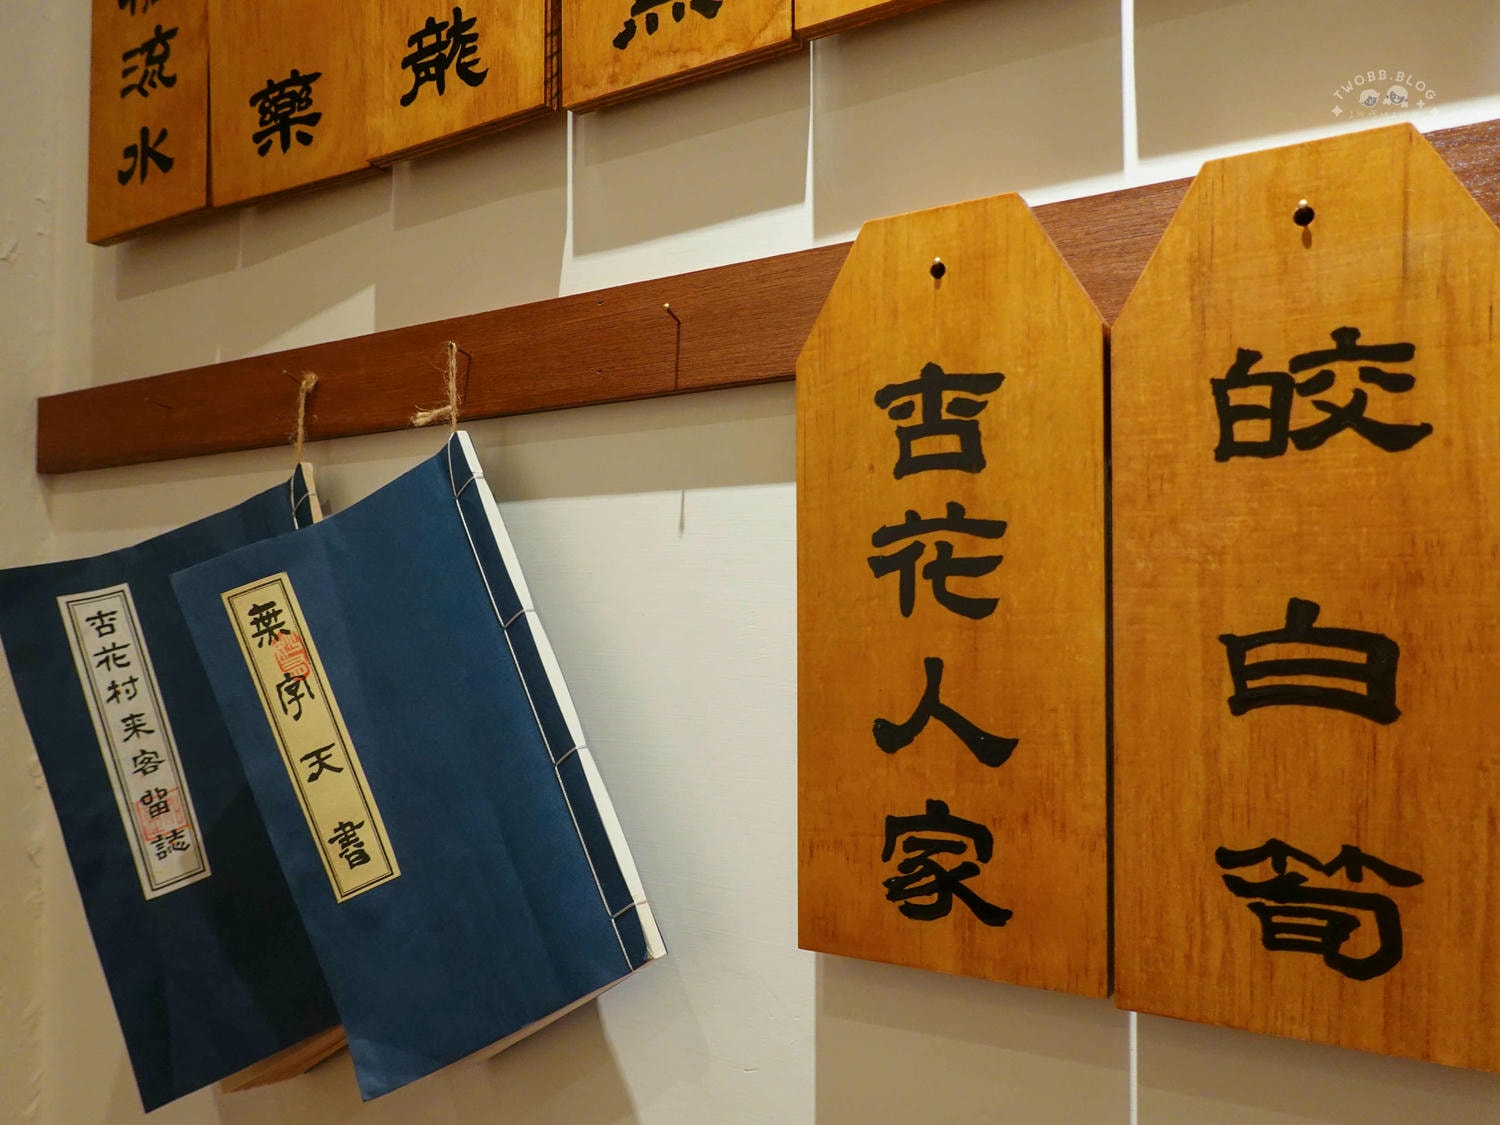 流水
藥
龍
TWOBB.BLOG
杏花人家
皎白筍
杏花村来客留誌
無字天書